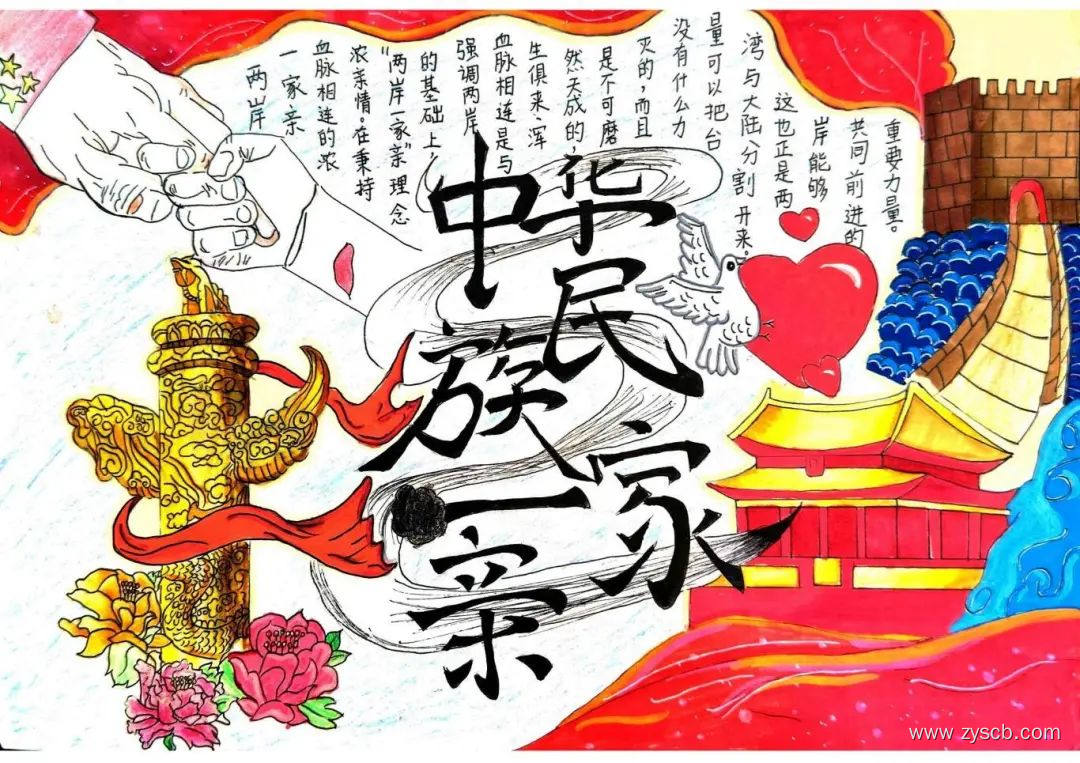 两岸
一家亲
血脉相连的浓
浓亲情。在秉持
“两岸一家亲”理念
的基础上，
强调两岸
血脉相连是与
生俱来、浑
然天成的，
是不可磨
灭的，而且
没有什么力
量可以把台
湾与大陆分割开来。
这也正是两
岸能够
共同前进的
重要力量。
中华民族一家亲
www.zyscb.com